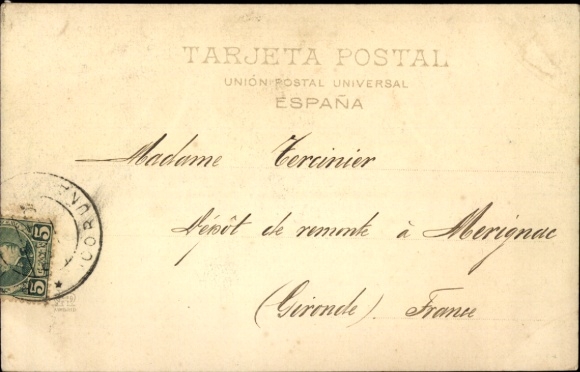 TARJETA POSTAL
UNIÓN POSTAL UNIVERSAL
ESPAÑA
Madame Tercinier
Dépôt de remonte à Merignac
(Gironde). France
CORUÑA
5
5